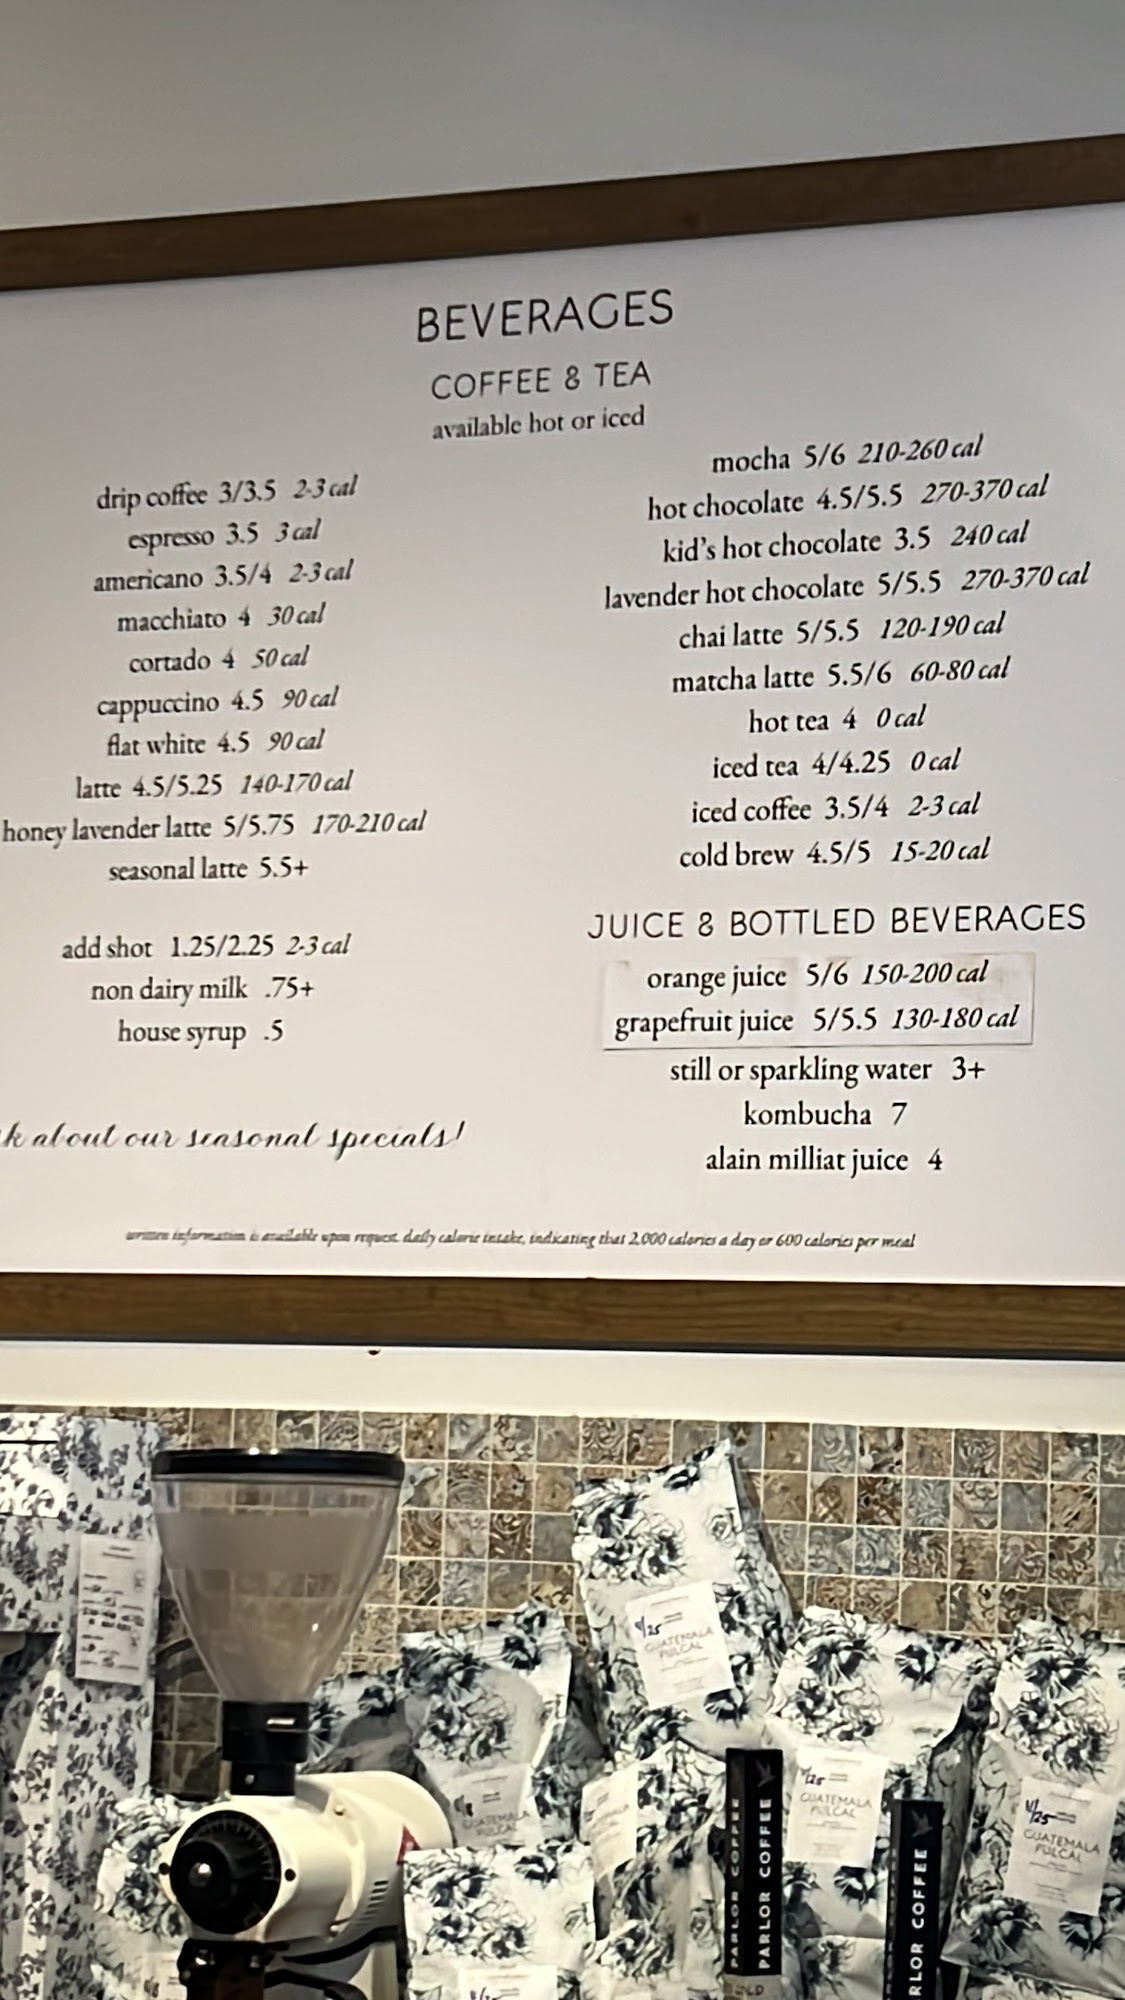 BEVERAGES
COFFEE & TEA
available hot or iced
drip coffee 3/3.5 2-3 cal
espresso 3.5 3 cal
americano 3.5/4 2-3 cal
macchiato 4 30 cal
cortado 4 50 cal
cappuccino 4.5 90 cal
flat white 4.5 90 cal
latte 4.5/5.25 140-170 cal
honey lavender latte 5/5.75 170-210 cal
seasonal latte 5.5+
add shot 1.25/2.25 2-3 cal
non dairy milk .75+
house syrup .5
k about our seasonal specials!
mocha 5/6 210-260 cal
hot chocolate 4.5/5.5 270-370 cal
kid's hot chocolate 3.5 240 cal
lavender hot chocolate 5/5.5 270-370 cal
chai latte 5/5.5 120-190 cal
matcha latte 5.5/6 60-80 cal
hot tea 4 0 cal
iced tea 4/4.25 0 cal
iced coffee 3.5/4 2-3 cal
cold brew 4.5/5 15-20 cal
JUICE & BOTTLED BEVERAGES
orange juice 5/6 150-200 cal
grapefruit juice 5/5.5 130-180 cal
still or sparkling water 3+
kombucha 7
alain milliat juice 4
written information is available upon request. daily calorie intake, indicating that 2,000 calories a day or 600 calories per meal
GUATEMALA
PULCAL
GUATEMALA
GUATEMALA
PULCAL
GUATEMALA
PULCAL
PARLOR COFFEE
PARLOR COFFEE
RLOR COFFEE